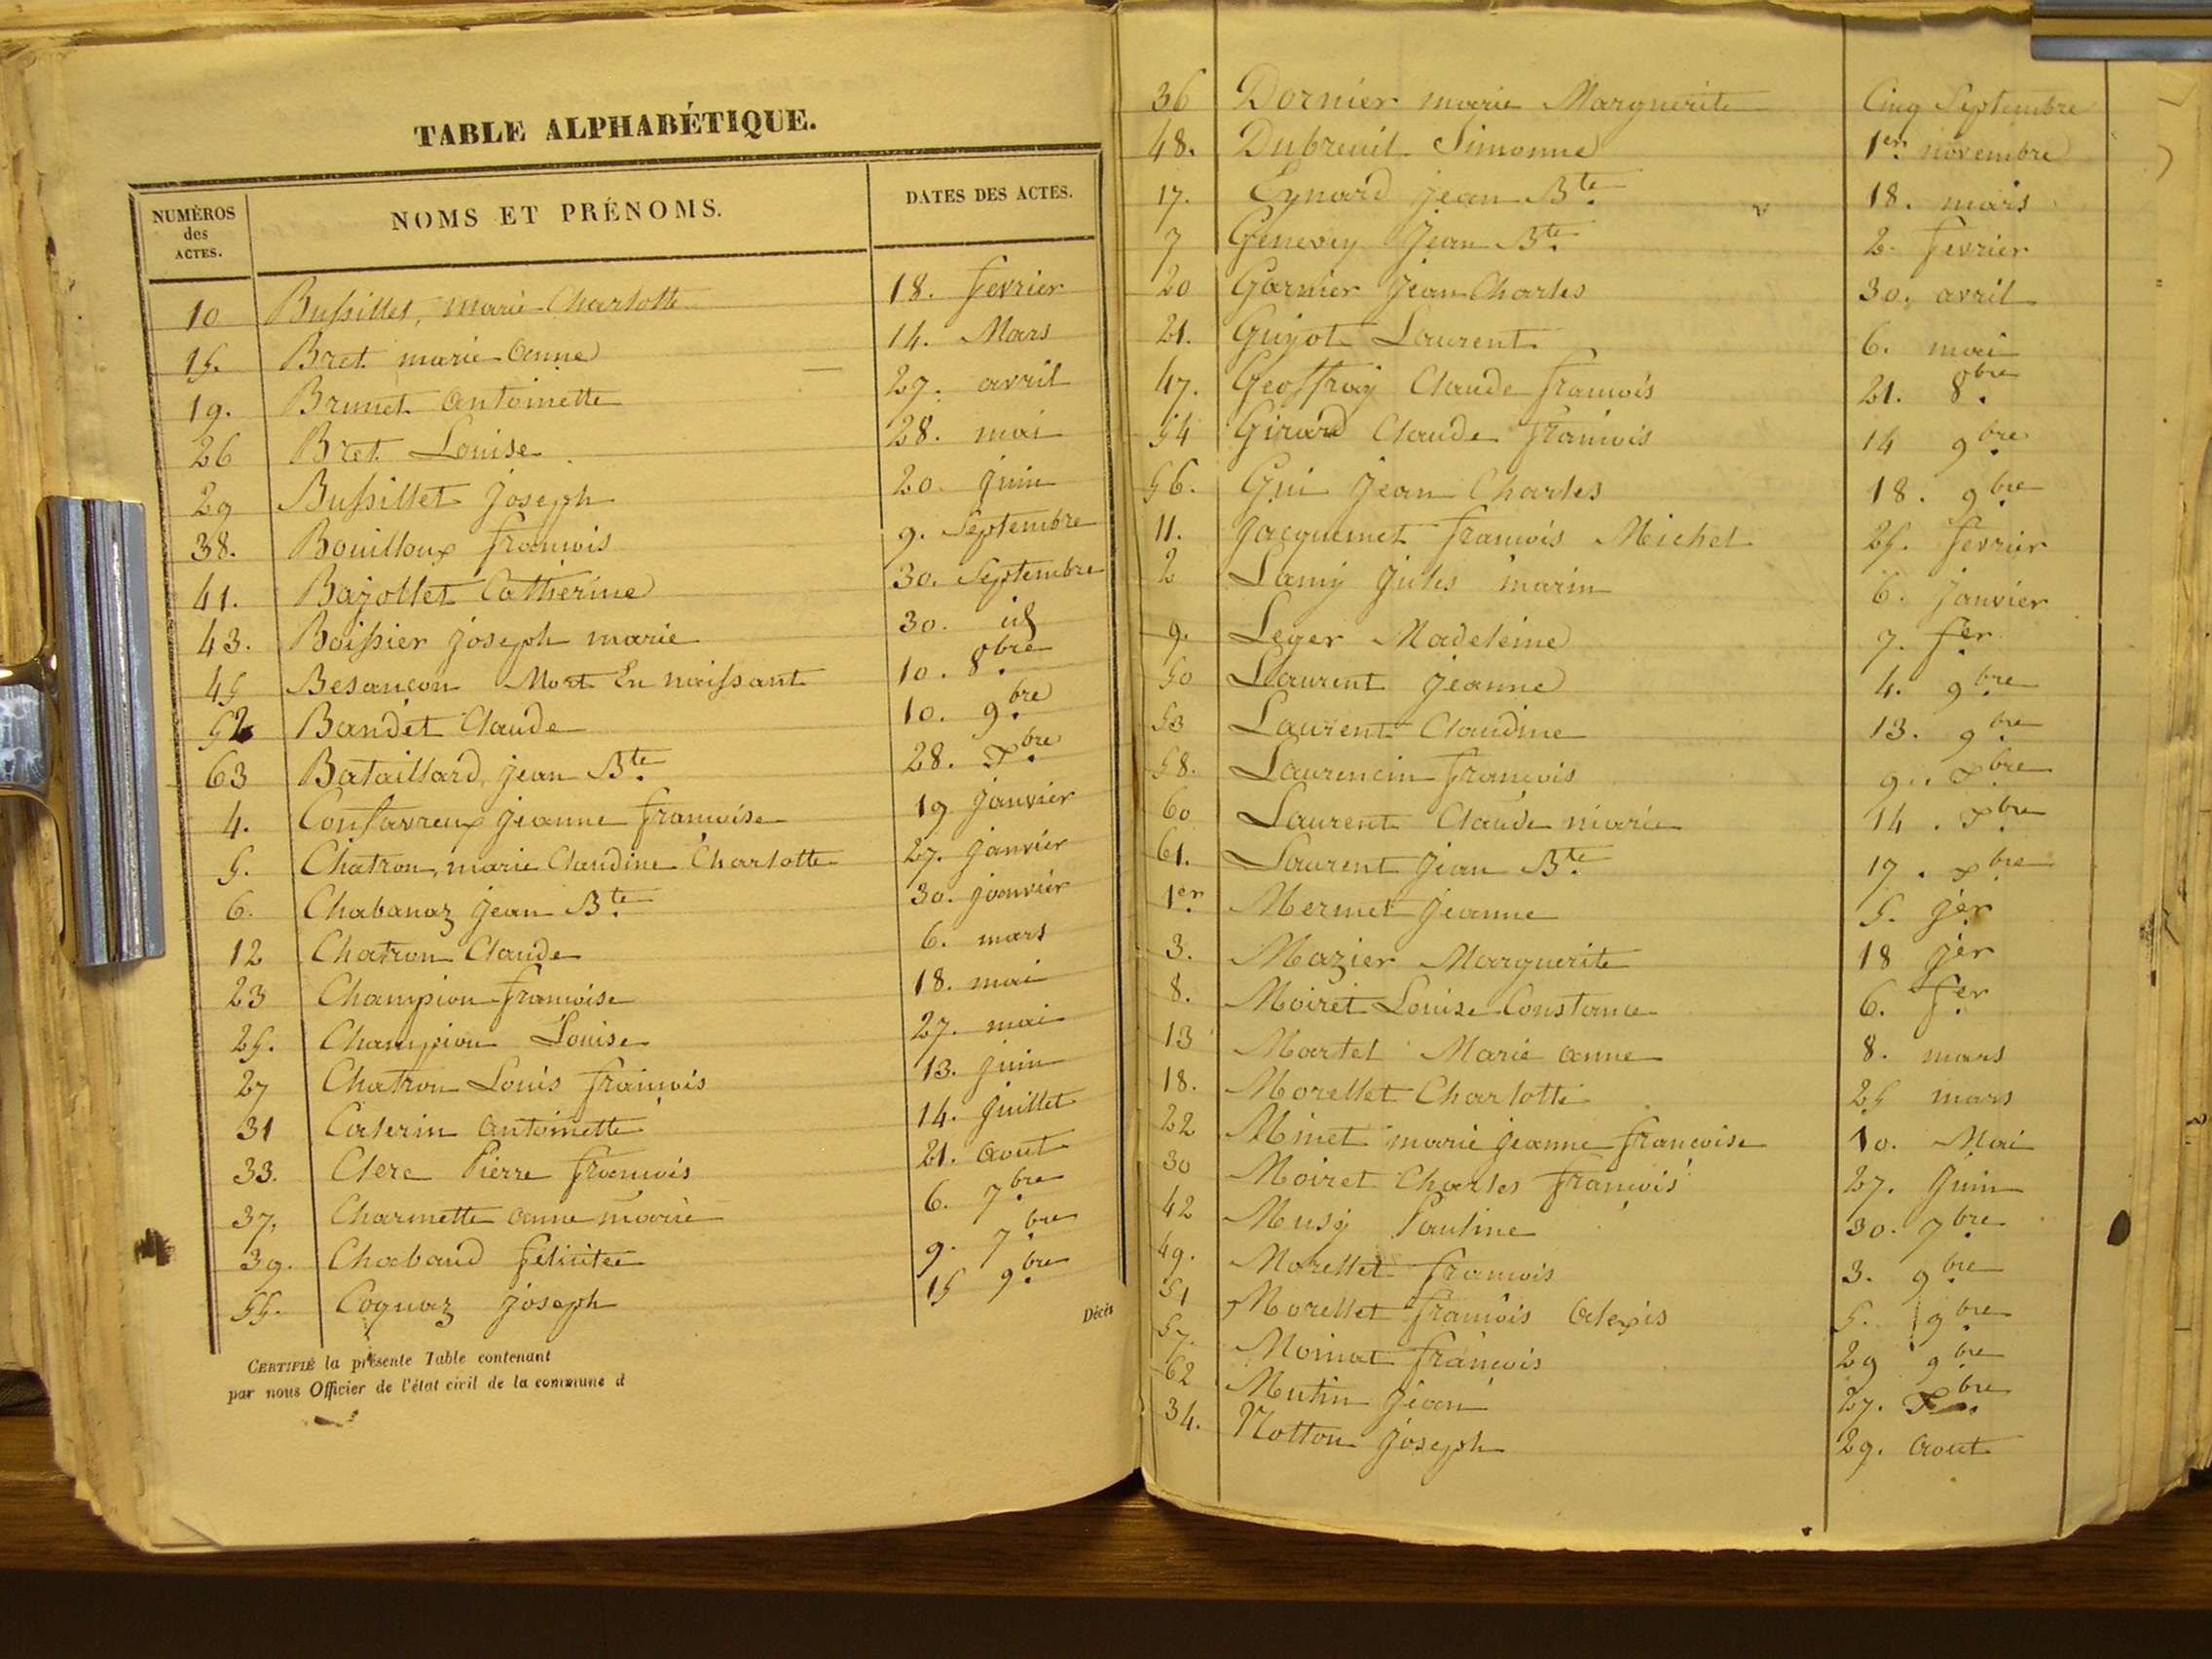 TABLE ALPHABÉTIQUE.
NUMÉROS des ACTES. NOMS ET PRÉNOMS. DATES DES ACTES.
10 Bussillet, marie Charlotte 18. fevrier
15. Bret marie anne 14. Mars
19. Brunet antoinette 27. avril
26 Bret Louise 28. mai
29 Bussillet joseph 20 juin
38. Bouilloux francois 9. Septembre
41. Bajollet Catherine 30. Septembre
43. Boissier joseph marie 30. id
45 Besançon Mort En naissant 10. 8bre
52 Bandet Claude 10. 9bre
63 Bataillard, jean Bte 28. Xbre
4. Confavreux jeanne francoise 19 janvier
5. Chatron, marie Claudine Charlotte 27. janvier
6. Chabanaz jean Bte 30. janvier
12 Chatron Claude 6. mars
23 Champion francoise 18. mai
25. Champion Louise 27. mai
27 Chatron Louis françois 13. juin
31 Caterin antoinette 14. juillet
33. Clerc Pierre francois 21. aout
37. Charmette anne marie 6. 7bre
39. Chabaud felicitée 9. 7bre
55. Coquaz joseph 15 9bre
Décès
CERTIFIÉ la présente Table contenant
par nous Officier de l'état civil de la commune d
36 Dornier marie Marguerite Cinq Septembre
48. Dubreuil Simonne 1er novembre
17. Eynard jean Bte 18. mars
7 Genevey Jean Bte 2. fevrier
20 Garnier Jean Charles 30. avril
21. Guyot Laurent 6. mai
47. Geoffray Claude francois 21. 8bre
54 Girard Claude françois 14 9bre
56. Gui Jean Charles 18. 9bre
11. Jacquemet françois Michel 25. fevrier
2 Lamy Jules marin 6. janvier
9. Leger Madeleine 7. fer
50 Laurent jeanne 4. 9bre
53 Laurent Claudine 13. 9bre
58. Laurencin françois 9. Xbre
60 Laurent Claude marie 14. Xbre
61. Laurent Jean Bte 17. Xbre
1er Mermet jeanne 5. jer
3. Mazier Marguerite 18 jer
8. Moiret Louise Constance 6. fer
13 Martel Marie anne 8. mars
18. Morellet Charlotte 25 mars
22 Minet marie jeanne francoise 10. Mai
30 Moiret Charles françois 27. Juin
42 Musy Pauline 30. 7bre
49. Morellet francois 3. 9bre
51 Morellet françois alexis 5. 9bre
57. Moinat françois 29 9bre
62 Mutin Jean 27. Xbre
34. Notton joseph 29. aout